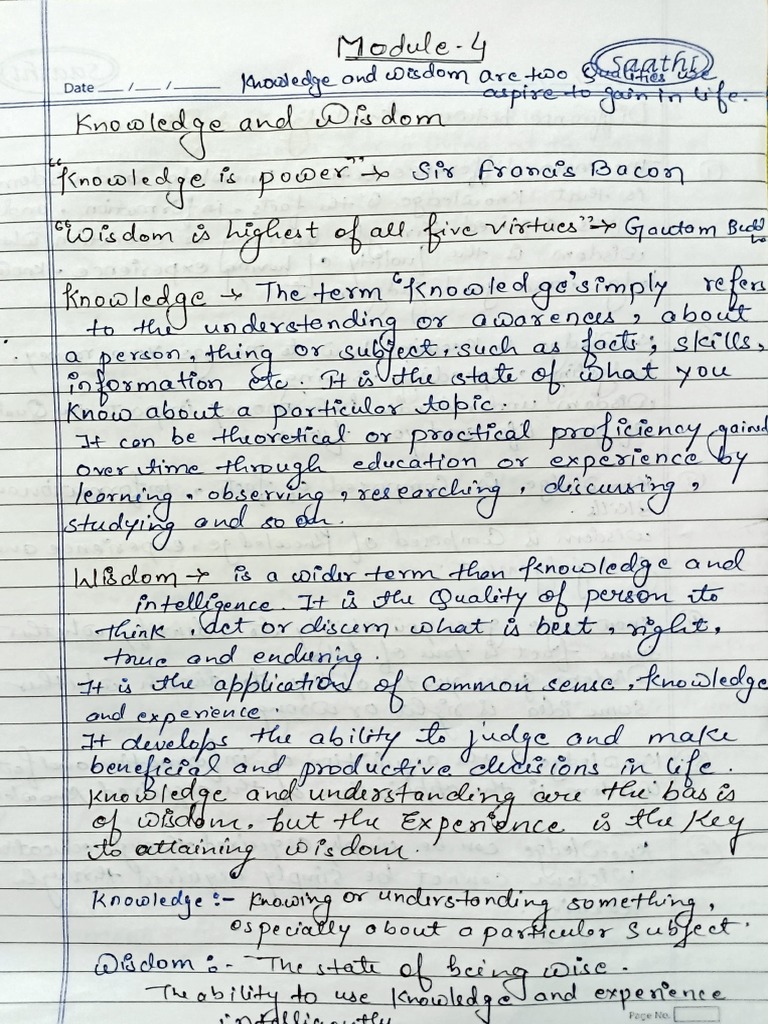 Module-4
Saathi
Date __/__/____
Knowledge and wisdom are two Qualities we
aspire to gain in life.
Knowledge and Wisdom
"Knowledge is power" → Sir Francis Bacon
"Wisdom is highest of all five virtues" → Gautam Buddha
Knowledge → The term "Knowledge' simply refers
to the understanding or awarences, about
a person, thing or subject, such as facts, skills,
information etc. It is the state of what you
Know about a particular topic.
It can be theoretical or practical proficiency gained
over time through education or experience by
learning, observing, researching, discussing,
studying and so on.
Wisdom → is a wider term than knowledge and
intelligence. It is the Quality of person to
think, act or discern what is best, right,
true and enduring.
It is the application of common sense, knowledge
and experience.
It develops the ability to judge and make
beneficial and productive decisions in life.
Knowledge and understanding are the basis
of wisdom. but the Experience is the Key
to attaining wisdom.
Knowledge :- Knowing or understanding something,
especially about a particular Subject.
Wisdom :- The state of being wise.
The ability to use Knowledge and experience
intelligently
Page No.